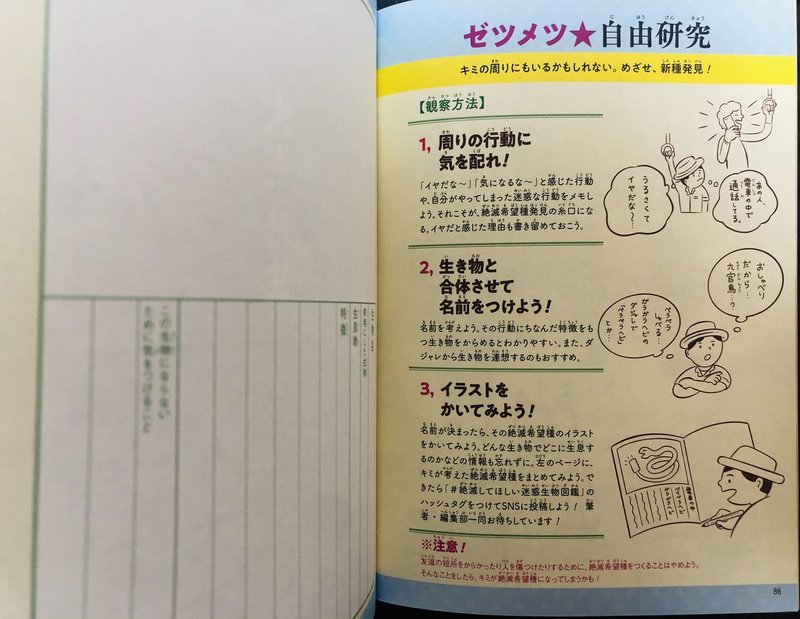 ゼツメツ★自由研究
キミの周りにもいるかもしれない。めざせ、新種発見！
【観察方法】
1, 周りの行動に
気を配れ！
「イヤだな〜」「気になるな〜」と感じた行動
や、自分がやってしまった迷惑な行動をメモし
よう。それこそが、絶滅希望種発見の糸口にな
る。イヤだと感じた理由も書き留めておこう。
あの人、
電車の中で
通話してる。
うるさくて
イヤだな〜…
2, 生き物と
合体させて
名前をつけよう！
名前を考えよう。その行動にちなんだ特徴をも
つ生き物をからめるとわかりやすい。また、ダ
ジャレから生き物を連想するのもおすすめ。
おしゃべり
だから…
九官鳥…？
ペラペラ
しゃべる…
ガラガラヘビの
ダジャレで
「ペラペラヘビ」
とか…
3, イラストを
かいてみよう！
名前が決まったら、その絶滅希望種のイラスト
をかいてみよう。どんな生き物でどこに生息す
るのかなどの情報も忘れずに。左のページに、
キミが考えた絶滅希望種をまとめてみよう。で
きたら「＃絶滅してほしい迷惑生物図鑑」の
ハッシュタグをつけてSNSに投稿しよう！ 筆
者・編集部一同お待ちしています！
※注意！
友達の短所をからかったり人を傷つけたりするために、絶滅希望種をつくることはやめよう。
そんなことをしたら、キミが絶滅希望種になってしまうかも！
86
生物名
参考にした生物
生息地
特徴
この生物にならない
ために気をつけること